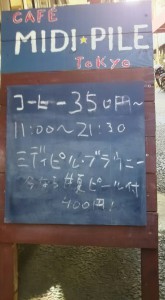 CAFE
MIDI★PILE
ToKyo
コーヒー350円〜
11:00〜21:30
ミディピル・ブラウニー
今なら生夏ビール付
400円!